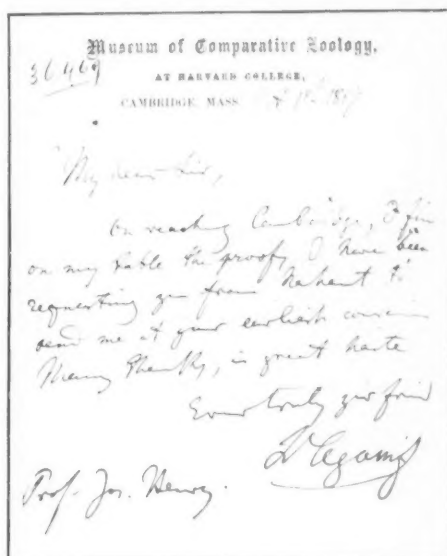 Museum of Comparative Zoology,
30469
AT HARVARD COLLEGE,
CAMBRIDGE, MASS
My dear Sir,
On reaching Cambridge, I fin
on my table the proofs I have been
requesting you from Nahant to
send me at your earliest
Many thanks, in great haste
Ever truly your friend
L Agassiz
Prof. Jos. Henry.